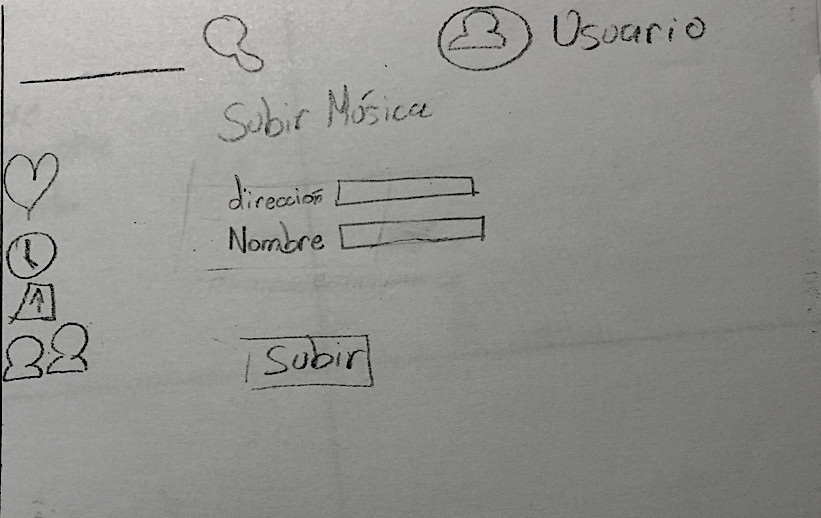 Usuario
Subir Música
dirección
Nombre
Subir